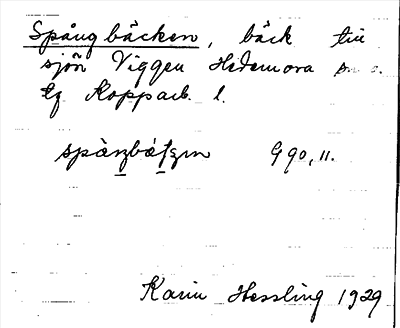 Spångbäcken, bäck till
sjön Viggen Hedemora sn o.
tg Kopparb. l.
spàŋbä́kən G 90, 11.
Karin Hessling 1929